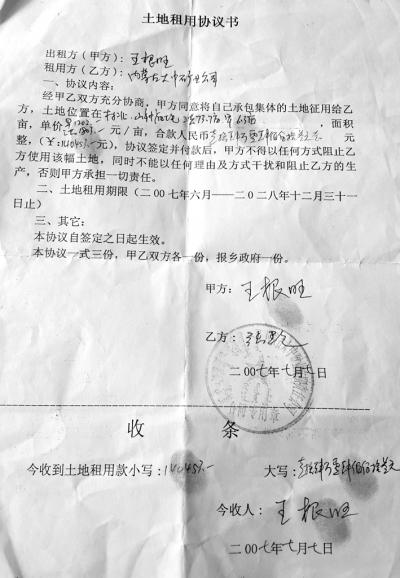 土地租用协议书
出租方（甲方）：王根旺
租用方（乙方）：内蒙古大中矿业公司
一、协议内容：
经甲乙双方充分协商，甲方同意将自己承包集体的土地征用给乙
方，土地位置在 面积
亩，单价 元／亩，合款人民币 元
整，（￥：140457.-元），协议签定并付款后，甲方不得以任何方式阻止乙
方使用该幅土地，同时不能以任何理由及方式干扰和阻止乙方的生
产，否则甲方承担一切责任。
二、土地租用期限（二00七年六月——二0二八年十二月三十一
日止）
三、其它：
本协议自签定之日起生效。
本协议一式三份，甲乙双方各一份，报乡政府一份。
甲方：王根旺
乙方：
二00七年七月七日
收 条
今收到土地租用款小写：140457.- 大写：
今收人：王根旺
二00七年七月七日